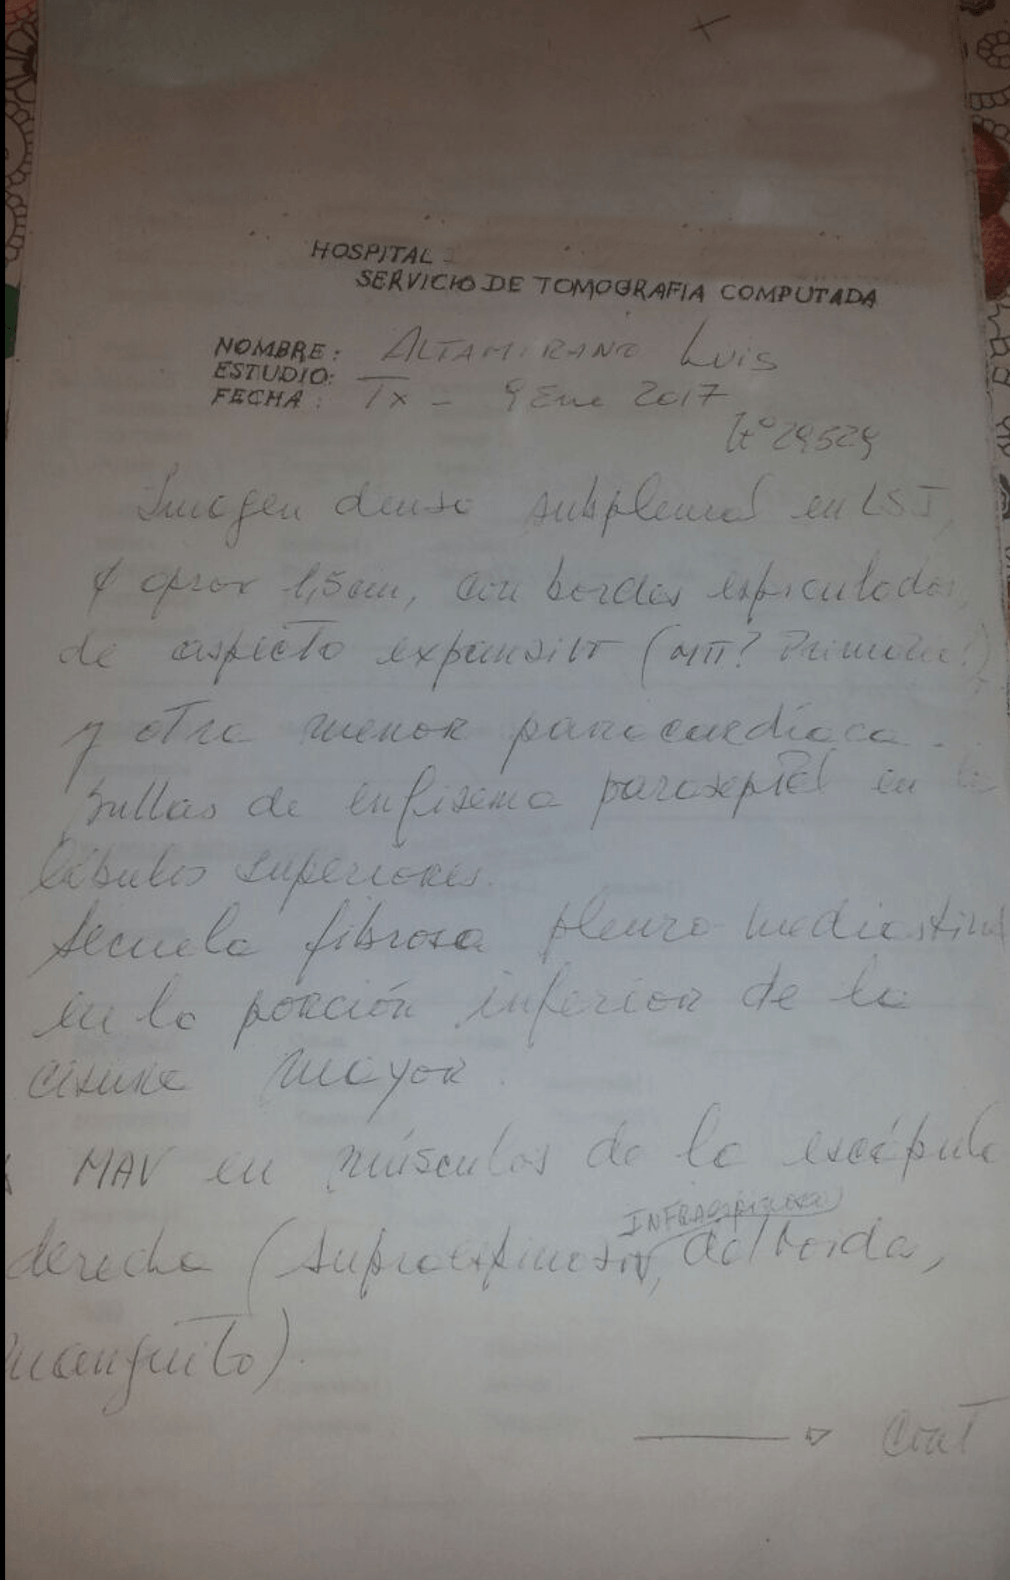 HOSPITAL
SERVICIO DE TOMOGRAFIA COMPUTADA
NOMBRE: ALTAMIRANO LUIS
ESTUDIO:
FECHA: Tx - 9 Ene 2017
29529
Imagen densa subpleural en LSI,
aprox 1,5cm, con bordes espiculados,
de aspecto expansivo (MTT? Primaria?)
y otra menor paracardíaca.
Bullas de enfisema paraseptal en
lóbulos superiores.
Secuela fibrosa pleuro-mediastinal
en la porción inferior de la
cisura mayor.
MAV en músculos de la escápula
INFRAespinoso
derecha (supraespinoso, deltoides,
manguito).
Cont